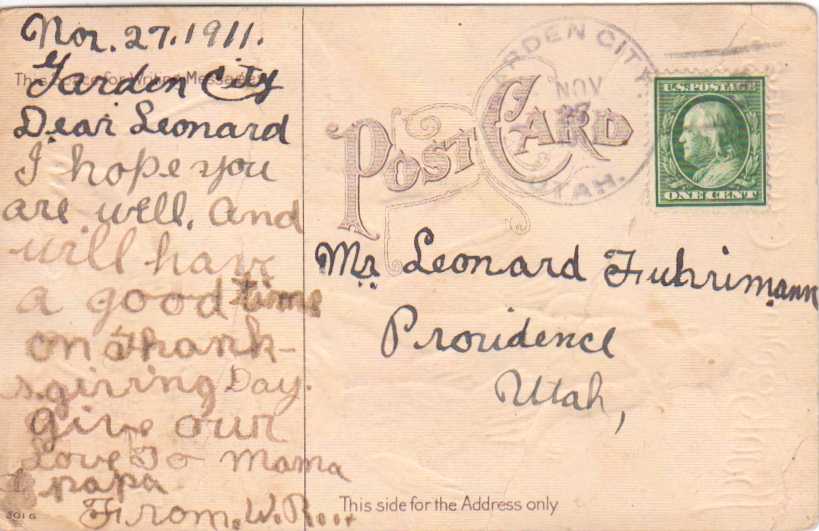 Nov. 27. 1911.
This Space for Writing Messages
Garden City
Dear Leonard
I hope you
are well. and
will have
a good time
on Thank-
sgiving Day.
give our
Love To Mama
papa
From. W.
3016
POST CARD
GARDEN CITY
NOV
27
UTAH.
U.S. POSTAGE
ONE CENT
Mr. Leonard Fuhrimann
Providence
Utah,
This side for the Address only